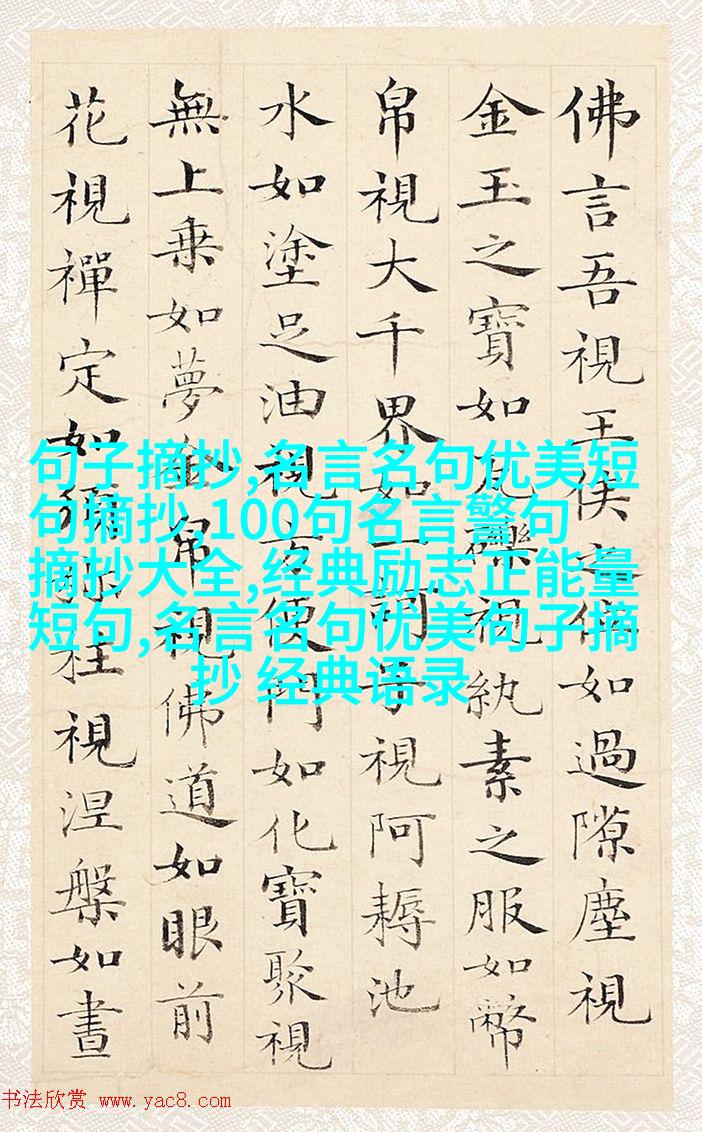 佛言吾視王侯之位如過隙塵視
金玉之寶如瓦礫視紈素之服如幣
帛視大千界如一訶子視阿耨池
水如塗足油視方便門如化寶聚視
無上乗如夢金帛視佛道如眼前
花視禪定如須弥柱視涅槃如晝
句子摘抄,名言名句优美短
句摘抄,100句名言警句
摘抄大全,经典励志正能量
短句,名言名句优美句子摘
抄 经典语录
书法欣赏 www.yac8.com